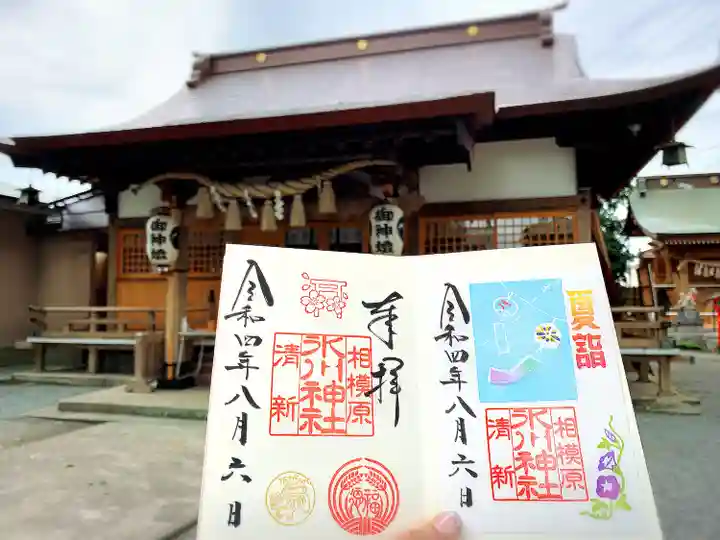 御神燈
御神燈
奉拝
相模原
氷川神社
清新
福
令和四年八月六日
夏詣
相模原
氷川神社
清新
令和四年八月六日